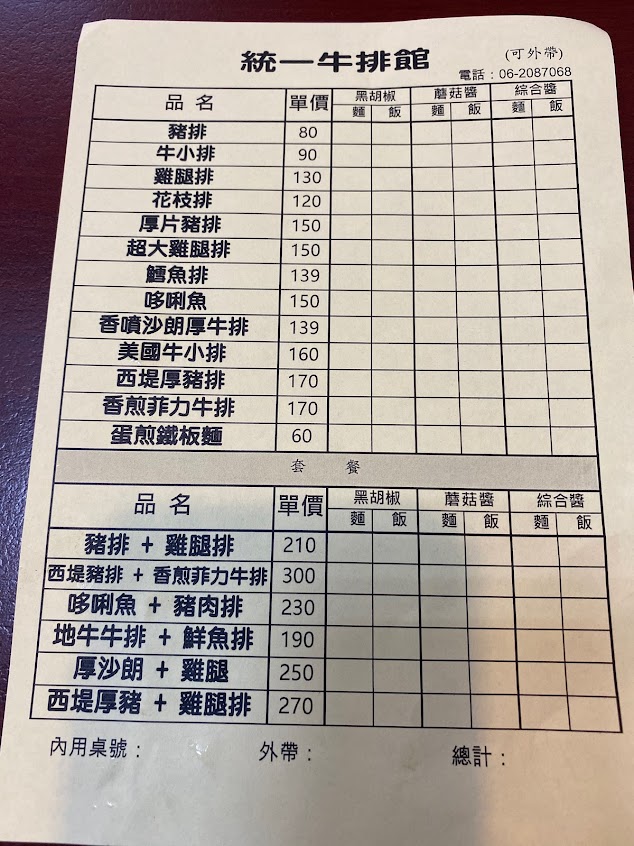 統一牛排館 (可外帶)
電話：06-2087068
品名 單價 黑胡椒 蘑菇醬 綜合醬
麵 飯 麵 飯 麵 飯
豬排 80
牛小排 90
雞腿排 130
花枝排 120
厚片豬排 150
超大雞腿排 150
鱈魚排 139
哆唎魚 150
香噴沙朗厚牛排 139
美國牛小排 160
西堤厚豬排 170
香煎菲力牛排 170
蛋煎鐵板麵 60
套 餐
品名 單價 黑胡椒 蘑菇醬 綜合醬
麵 飯 麵 飯 麵 飯
豬排 + 雞腿排 210
西堤豬排 + 香煎菲力牛排 300
哆唎魚 + 豬肉排 230
地牛牛排 + 鮮魚排 190
厚沙朗 + 雞腿 250
西堤厚豬 + 雞腿排 270
內用桌號： 外帶： 總計：